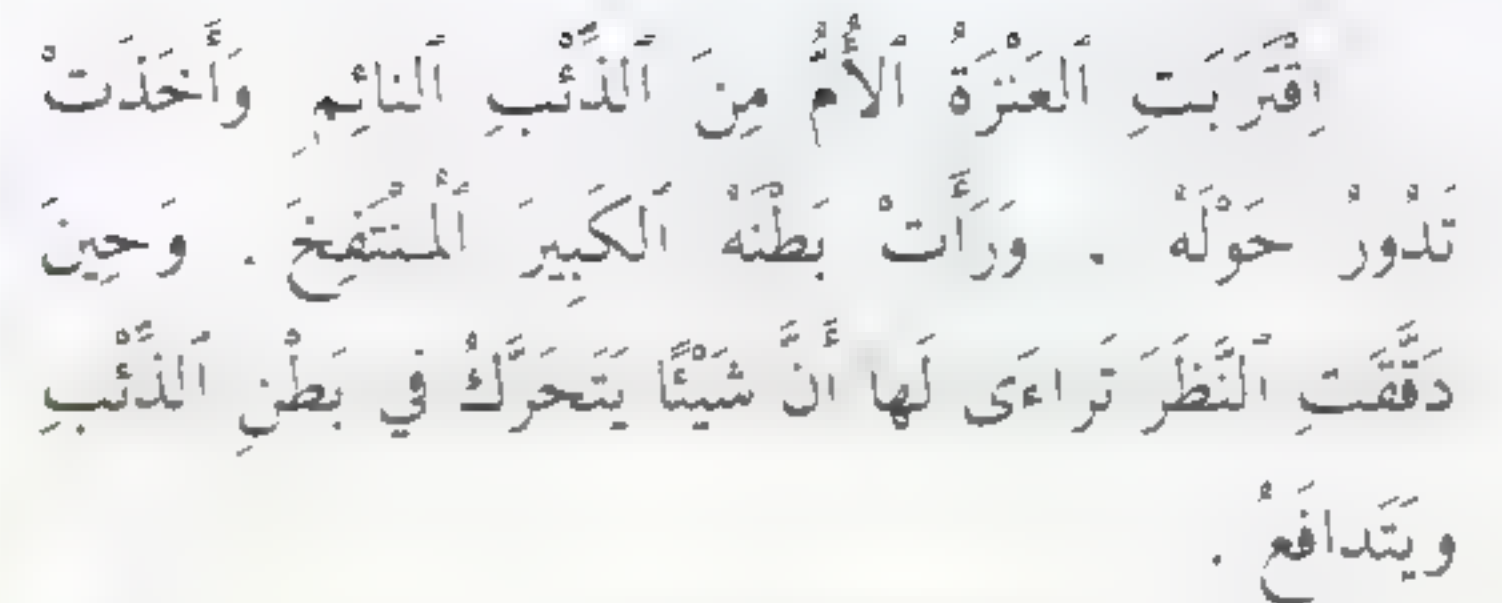 اِقْتَرَبَتِ ٱلعَنْزَةُ ٱلأُمُّ مِنَ ٱلذِّئْبِ ٱلنائِمِ وَأَخَذَتْ
تَدُورُ حَوْلَهُ . وَرَأَتْ بَطْنَهُ ٱلكَبِيرَ ٱلْمُنْتَفِخَ . وَحِينَ
دَقَّقَتِ ٱلنَّظَرَ تَراءَى لَها أَنَّ شَيْئًا يَتَحَرَّكُ فِي بَطْنِ ٱلذِّئْبِ
ويَتَدافَعُ .